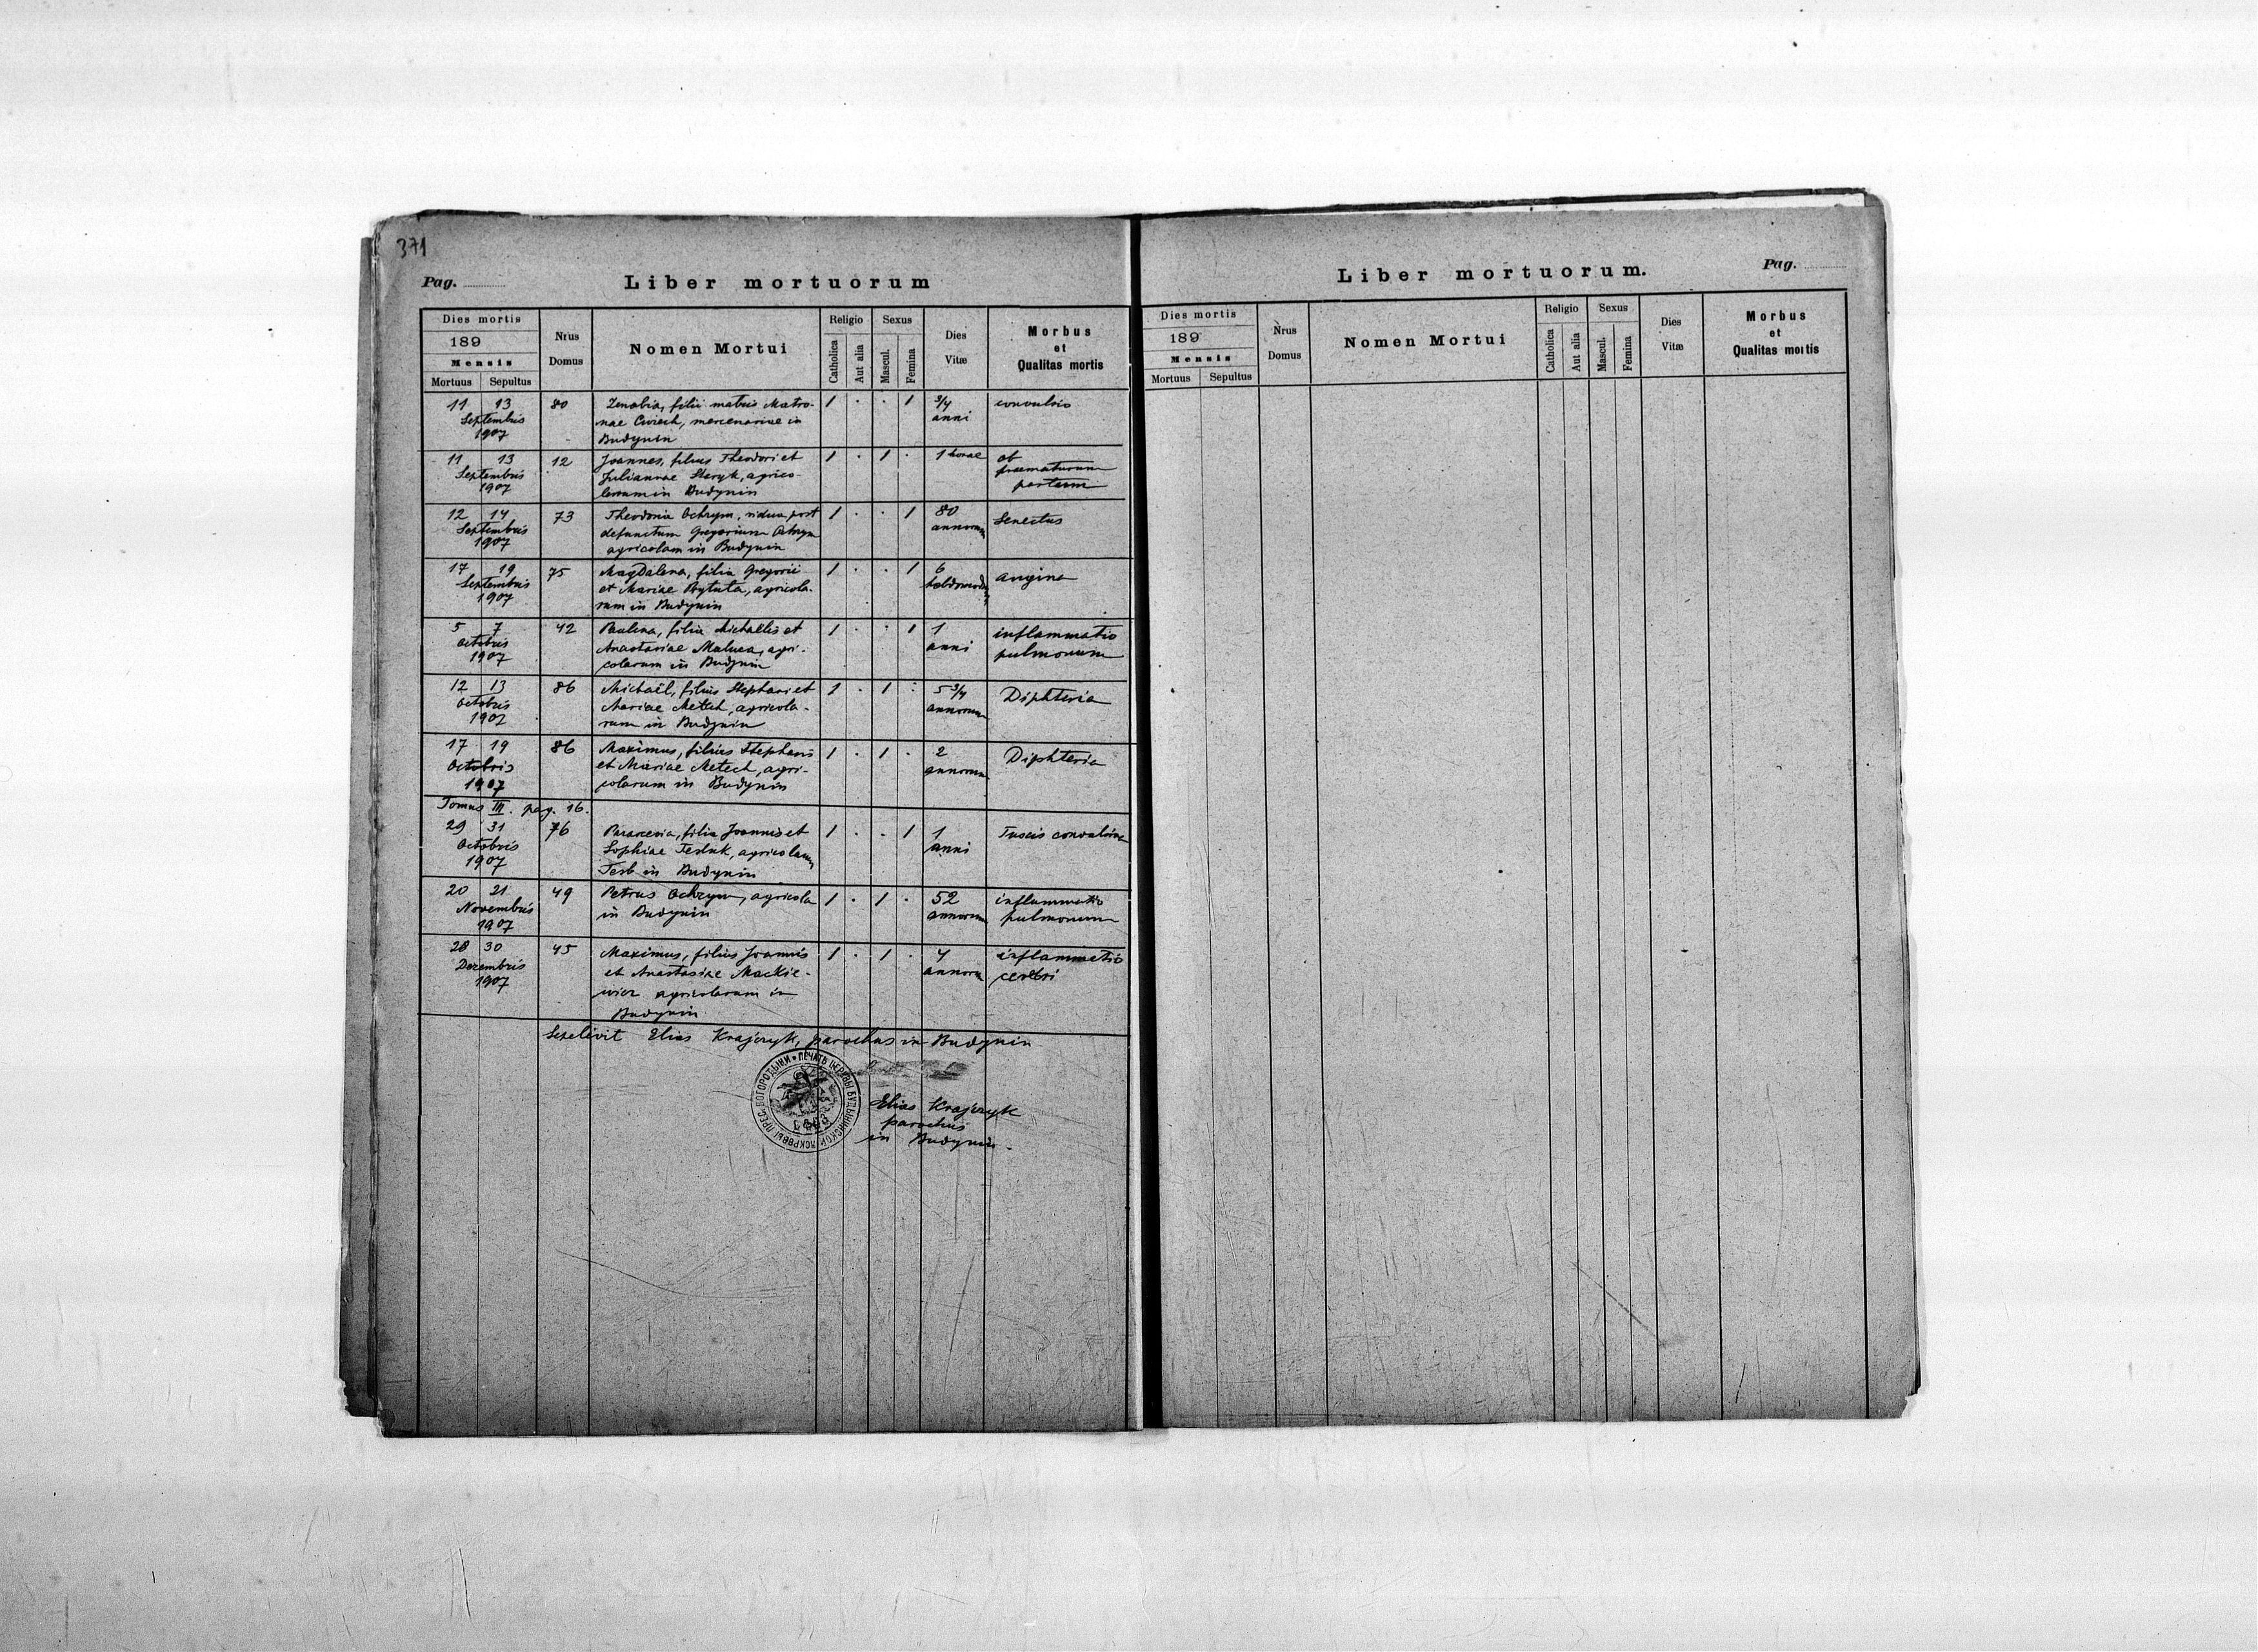 371
Pag.
Liber mortuorum
Dies mortis
189
Mensis
Mortuus Sepultus
Nrus
Domus
Nomen Mortui
Religio
Catholica
Aut alia
Sexus
Mascul.
Femina
Dies
Vitæ
Morbus
et
Qualitas mortis
11 13
Septembris
1907
80
Zenobia, filii matris Matro-
nae mercenariae in
Budynin
1 . . 1
3/4
anni
convulsio
11 13
Septembris
1907
12
Joannes, filius Theodori et
Juliannae Staryk, agrico-
larum in Budynin
1 . 1 .
1 horae
ob
praematurum
partum
12 14
Septembris
1907
73
Theodosia Ochrym, vidua post
defunctum Gregorium Ochrym
agricolam in Budynin
1 . . 1
80
annorum
Senectus
17 19
Septembris
1907
75
Magdalena, filia Gregorii
et Mariae agricola-
rum in Budynin
1 . . 1
6
angina
5 7
Octobris
1907
42
Paulina, filia Michaelis et
Anastasiae agri-
colarum in Budynin
1 . . 1
1
anni
inflammatio
pulmonum
12 13
Octobris
1907
86
Michaël, filius Stephani et
Mariae Metech, agricola-
rum in Budynin
1 . 1 .
5 3/4
annorum
Diphteria
17 19
Octobris
1907
86
Maximus, filius Stephani
et Mariae Metech, agri-
colarum in Budynin
1 . 1 .
2
annorum
Diphteria
Tomus III. pag. 16.
29 31
Octobris
1907
76
Parascevia, filia Joannis et
Sophiae agricolarum
in Budynin
1 . . 1
1
anni
Tussis convulsiva
20 21
Novembris
1907
49
Petrus Ochrym, agricola
in Budynin
1 . 1 .
52
annorum
inflammatio
pulmonum
28 30
Dezembris
1907
45
Maximus, filius Joannis
et Anastasiae Mackie-
wicz agricolarum in
Budynin
1 . 1 .
4
annorum
inflammatio
cerebri
Sepelivit Elias Krajczyk, parochus in Budynin
Elias Krajczyk
parochus
in Budynin.
Liber mortuorum.
Pag.
Dies mortis
189
Mensis
Mortuus Sepultus
Nrus
Domus
Nomen Mortui
Religio
Catholica
Aut alia
Sexus
Mascul.
Femina
Dies
Vitæ
Morbus
et
Qualitas mortis